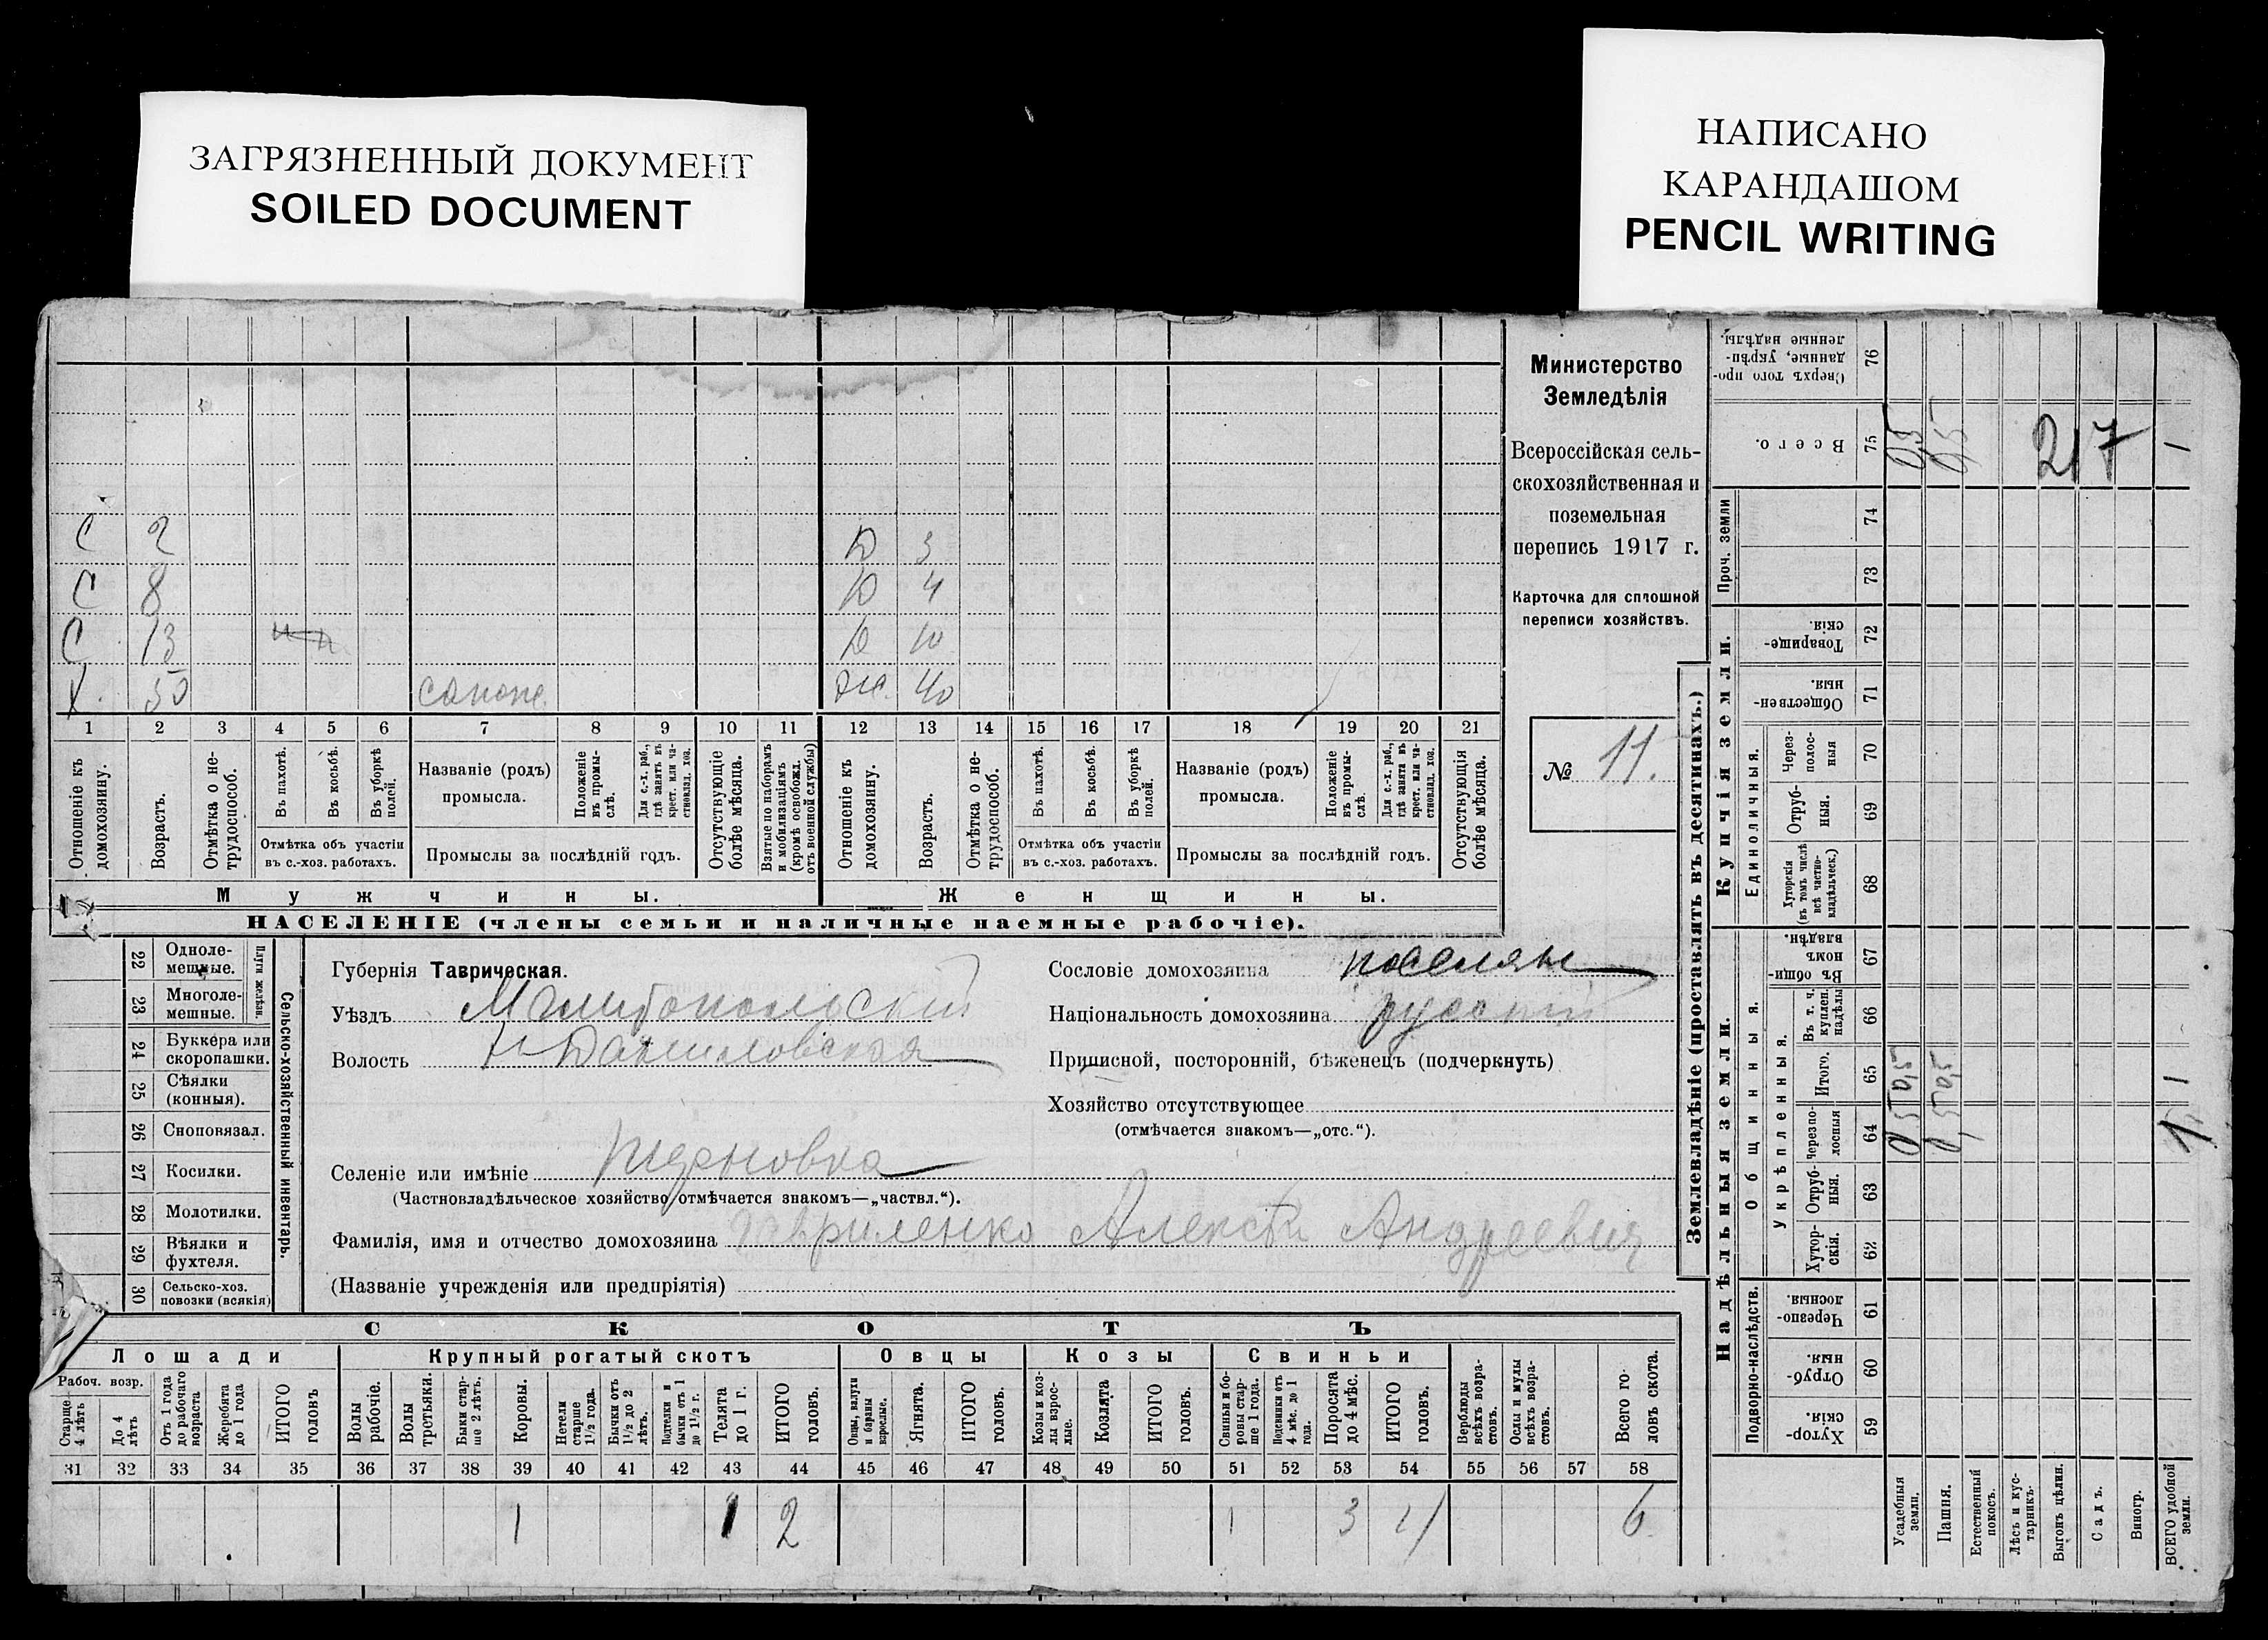 ЗАГРЯЗНЕННЫЙ ДОКУМЕНТ
SOILED DOCUMENT
НАПИСАНО
КАРАНДАШОМ
PENCIL WRITING
С 2 Д 3
С 8 Д 4
С 13 Д 10
Х 50 сапож. Ж. 40
1 2 3 4 5 6 7 8 9 10 11 12 13 14 15 16 17 18 19 20 21
Отношеніе къ домохозяину.
Возрастъ.
Отмѣтка о не-трудоспособ.
Въ пахотѣ.
Въ косьбѣ.
Въ уборкѣ полей.
Отмѣтка объ участіи въ с.-хоз. работахъ.
Названіе (родъ) промысла.
Положеніе въ промы-слѣ.
Для с.-х. раб., гдѣ занятъ въ крест. или ча-стновлад. хоз.
Промыслы за послѣдній годъ.
Отсутствующіе болѣе мѣсяца.
Взятые по наборамъ и мобилизаціямъ (кромѣ освобожд. отъ военной службы)
Отношеніе къ домохозяину.
Возрастъ.
Отмѣтка о не-трудоспособ.
Въ пахотѣ.
Въ косьбѣ.
Въ уборкѣ полей.
Отмѣтка объ участіи въ с.-хоз. работахъ.
Названіе (родъ) промысла.
Положеніе въ промы-слѣ.
Для с.-х. раб., гдѣ занята въ крест. или ча-стновлад. хоз.
Промыслы за послѣдній годъ.
Отсутствующія болѣе мѣсяца.
Мужчины.
Женщины.
НАСЕЛЕНІЕ (члены семьи и наличные наемные рабочіе).
Министерство
Земледѣлія
Всероссійская сель-
скохозяйственная и
поземельная
перепись 1917 г.
Карточка для сплошной
переписи хозяйствъ.
№ 11.
Сельско-хозяйственный инвентарь.
Плуги желѣзн.
22 Одноле-мешные.
23 Многоле-мешные.
24 Буккера или скоропашки.
25 Сѣялки (конныя).
26 Сноповязал.
27 Косилки.
28 Молотилки.
29 Вѣялки и фухтеля.
30 Сельско-хоз. повозки (всякія)
Губернія Таврическая.
Уѣздъ Мелитопольский
Волость Н-Даниловская
Селеніе или имѣніе
(Частновладѣльческое хозяйство отмѣчается знакомъ—„частвл.“).
Сословіе домохозяина поселяне
Національность домохозяина русский
Приписной, посторонній, бѣженецъ (подчеркнуть)
Хозяйство отсутствующее
(отмѣчается знакомъ—„отс.“).
Фамилія, имя и отчество домохозяина Гавриленко Алексѣй Андреевич
(Названіе учрежденія или предпріятія)
СКОТЪ
Лошади
Крупный рогатый скотъ
Овцы
Козы
Свиньи
Рабоч. возр.
Старще 4 лѣтъ
До 4 лѣтъ
Отъ 1 года до рабочаго возраста
Жеребята до 1 года
ИТОГО головъ
Волы рабочіе.
Волы третьяки.
Быки стар-ше 2 лѣтъ.
Коровы.
Нетели старше 1½ года.
Бычки отъ 1½ до 2 лѣтъ.
Подтелки и бычки отъ 1 до 1½ г.
Телята до 1 г.
ИТОГО головъ.
Овцы, валухи и бараны взрослые.
Ягнята.
ИТОГО головъ.
Козы и коз-лы взрос-лые.
Козлята
ИТОГО головъ.
Свиньи и бо-ровы стар-ше 1 года.
Подсвинки отъ 4 мѣс. до 1 года.
Поросята до 4 мѣс.
ИТОГО головъ.
Верблюды всѣхъ возра-стовъ.
Ослы и мулы всѣхъ возра-стовъ.
Всего го-ловъ скота.
31 32 33 34 35 36 37 38 39 40 41 42 43 44 45 46 47 48 49 50 51 52 53 54 55 56 57 58
1 1 2 1 3 4 6
Землевладѣніе (проставлять въ десятинахъ.)
Надѣльныя земли.
Купчія земли.
Проч. земли
Подворно-наслѣдств.
Общинныя.
Укрѣпленныя.
Единоличныя.
Сверхъ того про-данные, укрѣп-ленные надѣлы. 76
Всего. 75 0,5 0,5 217 1
74
73
Товарище-скія. 72
Обществен-ныя. 71
Через-полос-ныя 70
Отруб-ныя. 69
Хуторскія (въ томъ числѣ всѣ частно-владѣльческ.) 68
Въ общи-номъ владѣн. 67
Въ т. ч. куплен. надѣлы 66
Итого. 65 0,5 0,5 1
Черезпо-лосныя 64 0,5 0,5 1
Отруб-ныя. 63
Хутор-скія. 62
Черезпо-лосныя. 61
Отруб-ныя. 60
Хутор-скія. 59
Усадебныя земли.
Пашня.
Естественный покосъ.
Лѣсъ и кус-тарникъ.
Выгонъ цѣлин.
Садъ.
Виногр.
ВСЕГО удобной земли.